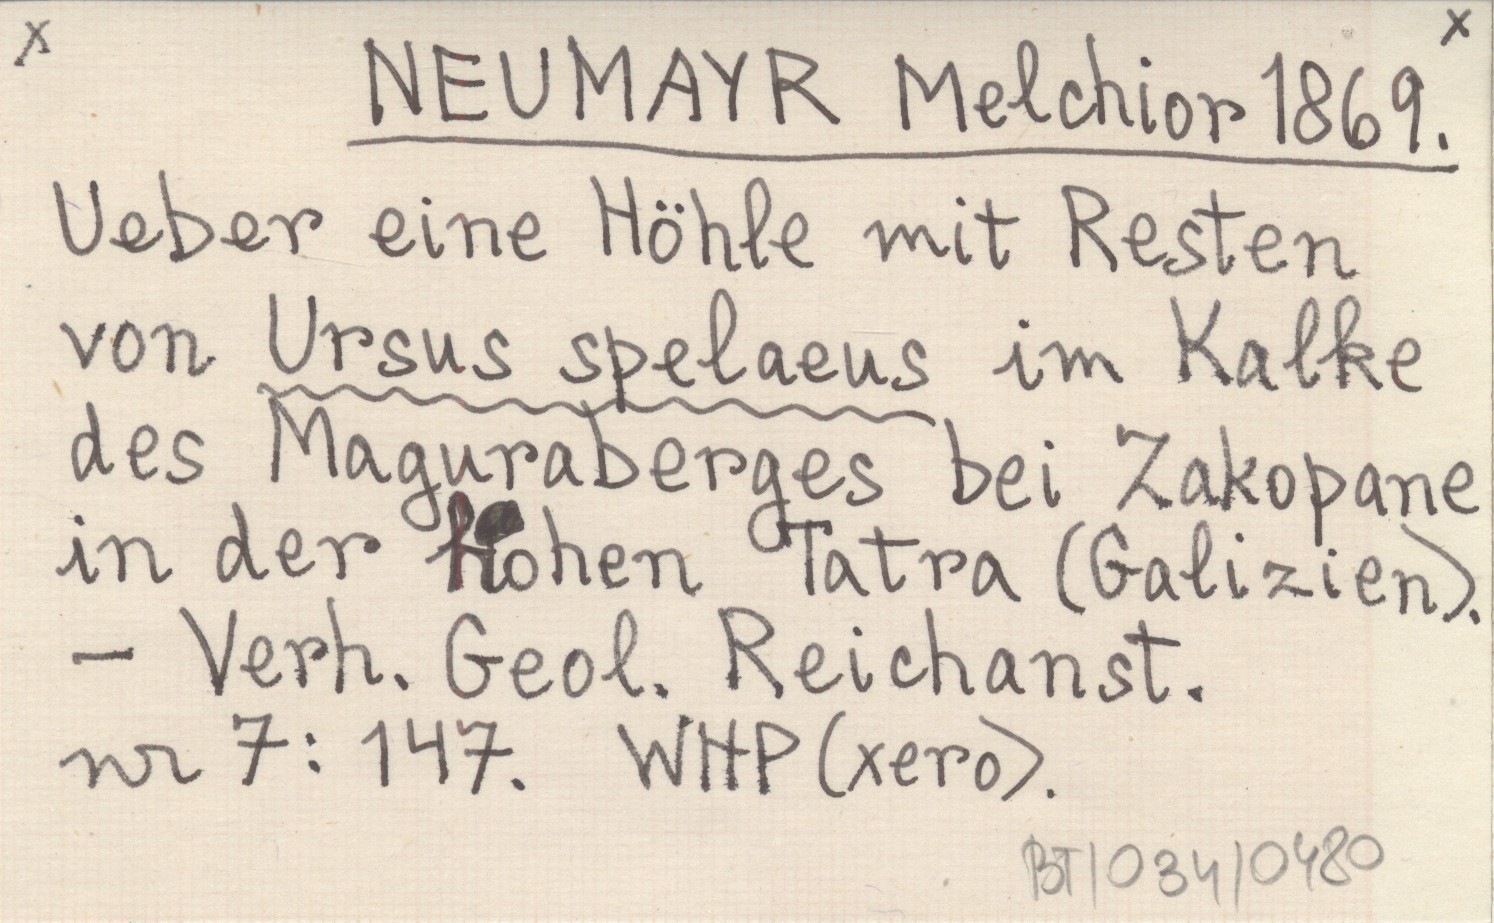 x x
NEUMAYR Melchior 1869.
Ueber eine Höhle mit Resten
von Ursus spelaeus im Kalke
des Maguraberges bei Zakopane
in der hohen Tatra (Galizien).
– Verh. Geol. Reichanst.
nr 7: 147. WHP (xero).
BT/034/0480